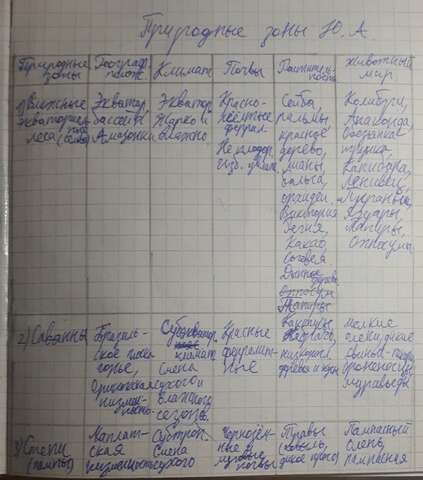 Природные зоны Ю. А.
Природные зоны
Географ. полож.
Климат
Почвы
Растительность
Животный мир
1) Влажные экваториал. леса (сельва)
Экватор, бассейн Амазонки
Экватор. Жарко и влажно
Красно-жёлтые ферралл.
Сейба, пальмы, красное дерево, лианы, бальса, орхидеи, Виктория регия, какао, гевея
Колибри, Анаконда, Капибара, Ленивец, Ягуары, Тапиры, Опоссумы
2) Саванны
Бразильское плоскогорье, Оринокская низменность
Субэкватор. климат Смена сухого и влажного сезонов
Красные ферралитные
кактусы,
мелкие олени, дикие свиньи-пекари броненосцы муравьеды
3) Степи (пампы)
Лаплатская низменность
Субтроп. Смена сухого
Чернозёмные почвы
Травы (ковыль, дикое просо)
Пампасный олень, пампасная